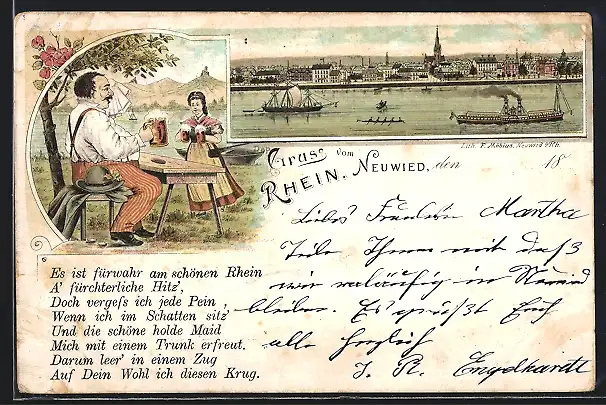 Lith. F. Möbius, Neuwied a/Rh.
Gruss vom
RHEIN. NEUWIED, den 18
Liebes Fräulein Martha
Teile Ihnen mit daß
wir vorläufig in Neuwied
bleiben. Es grüßt Euch
alle herzlich
J. R. Engelhardt
Es ist fürwahr am schönen Rhein
A' fürchterliche Hitz',
Doch vergess ich jede Pein,
Wenn ich im Schatten sitz'
Und die schöne holde Maid
Mich mit einem Trunk erfreut.
Darum leer' in einem Zug
Auf Dein Wohl ich diesen Krug.